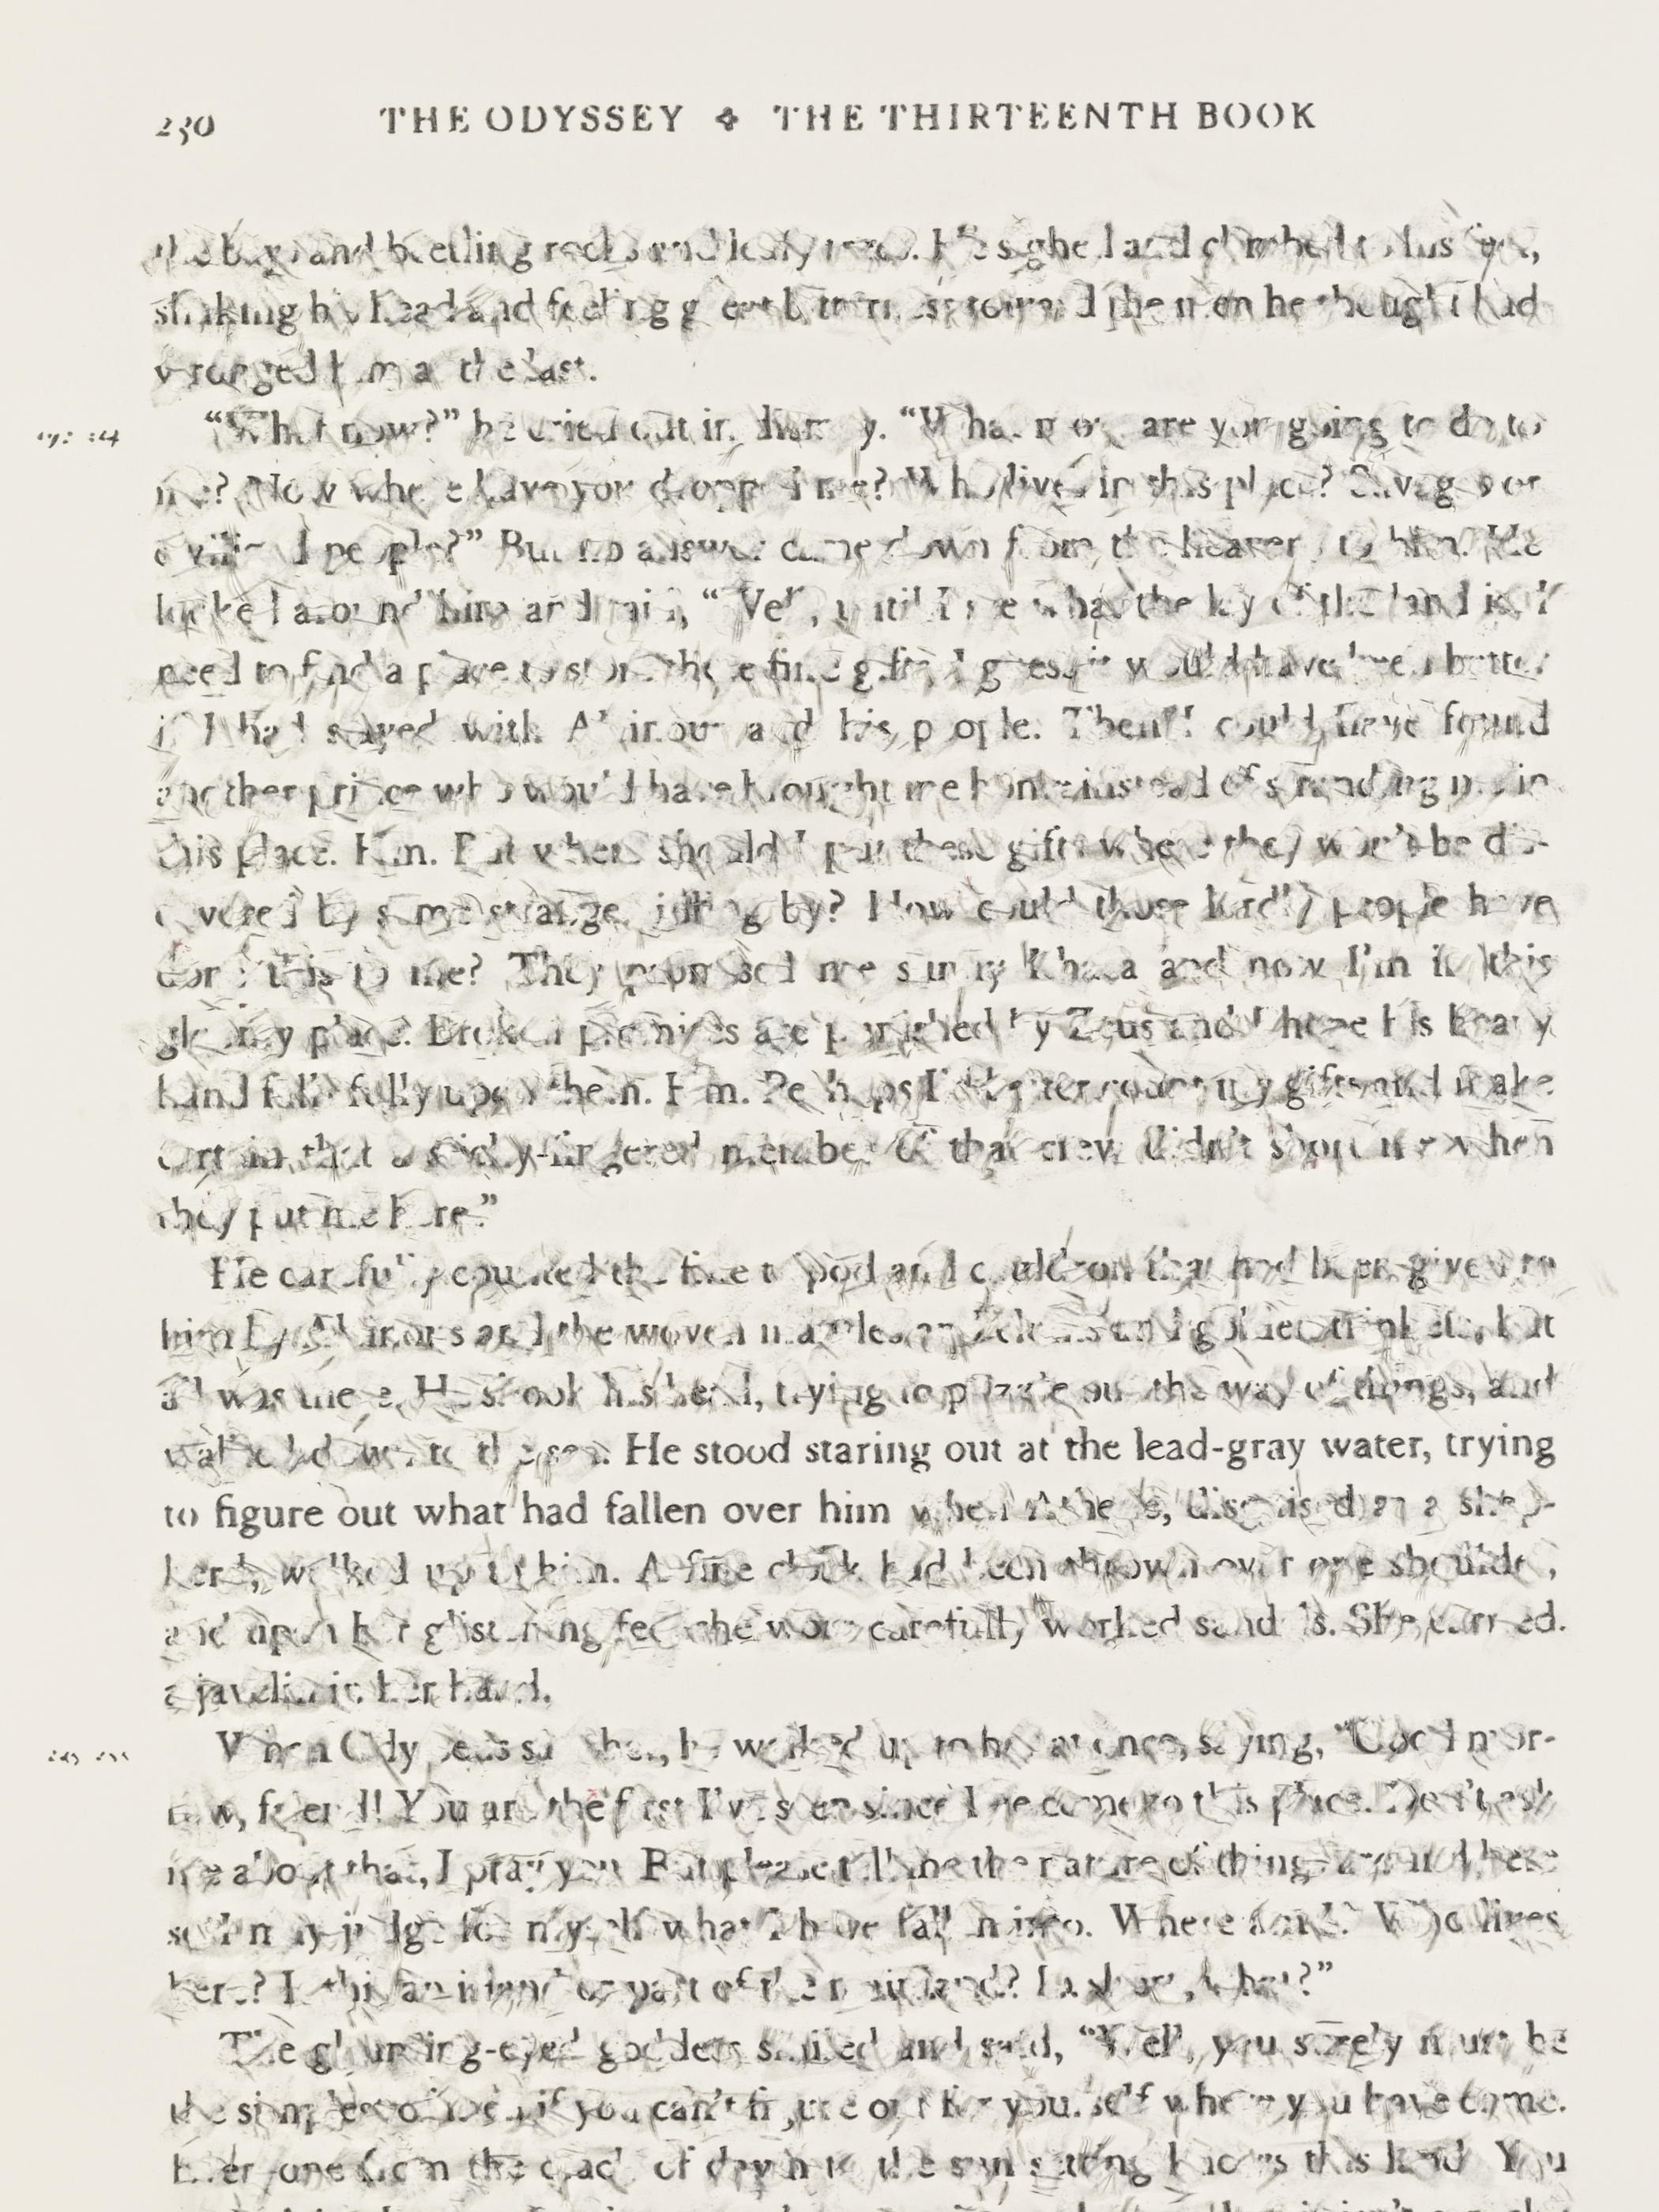 230 THE ODYSSEY ✥ THE THIRTEENTH BOOK
the bay and beetling rocks and leafy trees. He sighed and climbed to his feet,
shaking his head and feeling great bitterness toward the men he thought had
wronged him at the last.
“What now?” he cried out in dismay. “What now are you going to do to
me? Now where have you dropped me? Who lives in this place? Savages or
civilized people?” But no answer came down from the heavens to him. He
looked around him and said, “Well, until I see what the lay of the land is, I
need to find a place to store these fine gifts. I guess it would have been better
if I had stayed with Alkinous and his people. Then I could have found
another prince who would have brought me home instead of stranding me in
this place. Hm. But where should I put these gifts where they won’t be dis-
covered by some stranger idling by? How could those kindly people have
done this to me? They promised me sunny Ithaca and now I’m in this
gloomy place. Broken promises are punished by Zeus and I hope his heavy
hand falls fully upon them. Hm. Perhaps I’d better count my gifts and make
certain that a sticky-fingered member of that crew didn’t short me when
they put me here.”
He carefully counted the fine tripod and cauldron that had been given to
him by Alkinous and the woven mantles and and golden trinkets, but
all was there. He shook his head, trying to puzzle out the way of things, and
walked down to the sea. He stood staring out at the lead-gray water, trying
to figure out what had fallen over him when Athene, disguised as a shep-
herd, walked up to him. A fine cloak had been thrown over one shoulder,
and upon her glistening feet she wore carefully worked sandals. She carried
a javelin in her hand.
When Odysseus saw her, he walked up to her at once, saying, “Good mor-
row, friend! You are the first I’ve seen since I’ve come to this place. Don’t ask
me about that, I pray you. But please tell me the nature of things around here
so I may judge for myself what I have fallen into. Where am I? Who lives
here? Is this an island or part of the mainland? In short, what?”
The glinting-eyed goddess smiled and said, “Well, you surely must be
the simplest of men if you can’t figure out for yourself where you have come.
Everyone from the crack of dawn to the sun setting knows this land. You